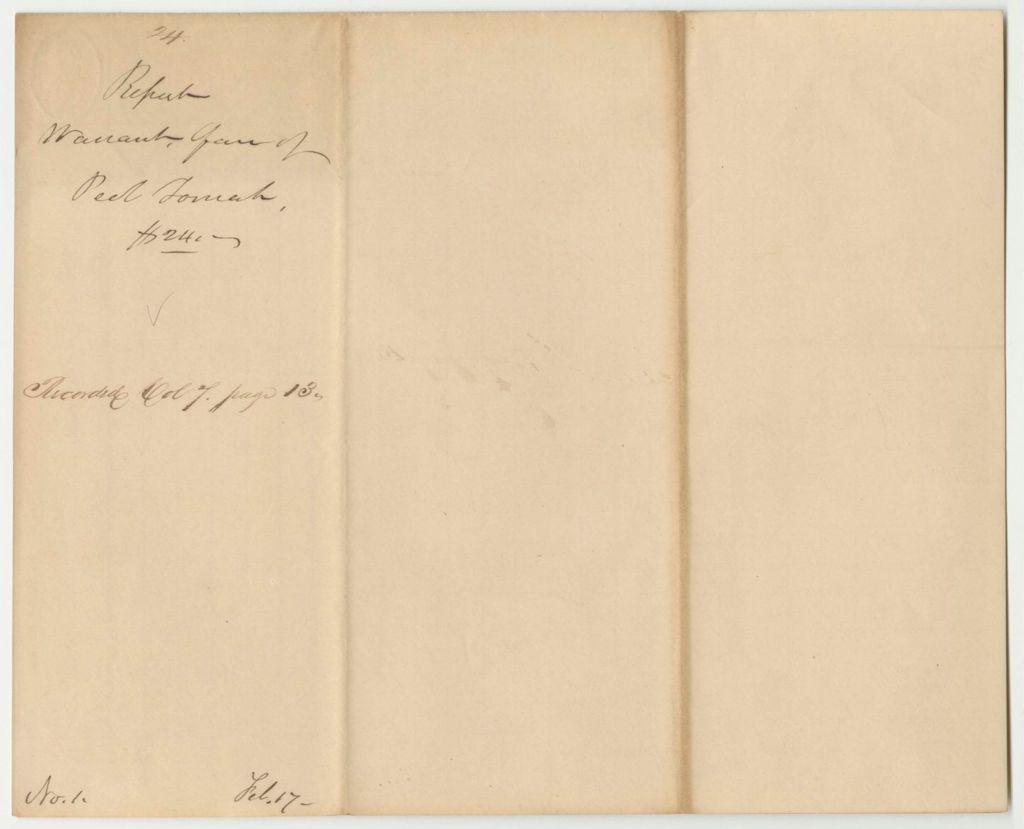 24.
Report
Warrant, fav of
Peol Tomah,
$24.
Recorded Vol 7. page 13.
No. 1.
Feb. 17